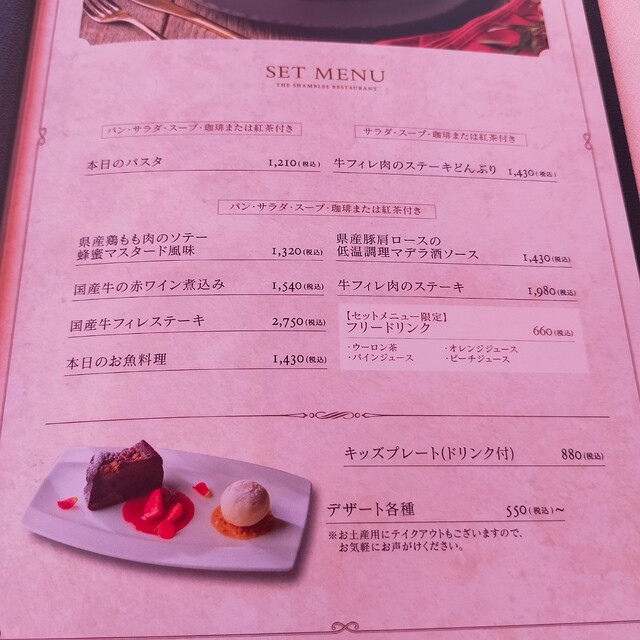 SET MENU
THE SHAMBLES RESTAURANT
パン・サラダ・スープ・珈琲または紅茶付き
本日のパスタ 1,210(税込)
サラダ・スープ・珈琲または紅茶付き
牛フィレ肉のステーキどんぶり 1,430(税込)
パン・サラダ・スープ・珈琲または紅茶付き
県産鶏もも肉のソテー
蜂蜜マスタード風味 1,320(税込)
国産牛の赤ワイン煮込み 1,540(税込)
国産牛フィレステーキ 2,750(税込)
本日のお魚料理 1,430(税込)
県産豚肩ロースの
低温調理マデラ酒ソース 1,430(税込)
牛フィレ肉のステーキ 1,980(税込)
【セットメニュー限定】
フリードリンク 660(税込)
・ウーロン茶 ・オレンジジュース
・パインジュース ・ピーチジュース
キッズプレート(ドリンク付) 880(税込)
デザート各種 550(税込)〜
※お土産用にテイクアウトもございますので、
お気軽にお声がけください。